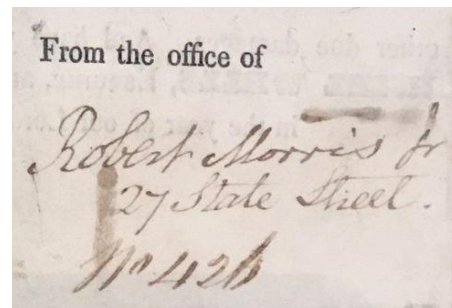 From the office of
Robert Morris Jr
27 State Street.
No 426